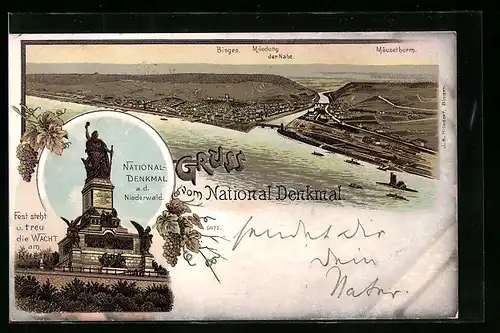 Bingen.
Mündung
der Nahe.
Mäusethurm.
NATIONAL-
DENKMAL
a.d.
Niederwald.
Gruss
vom National Denkmal
Fest steht
u. treu
die WACHT
am
5072.
sendet dir
dein
Vater.